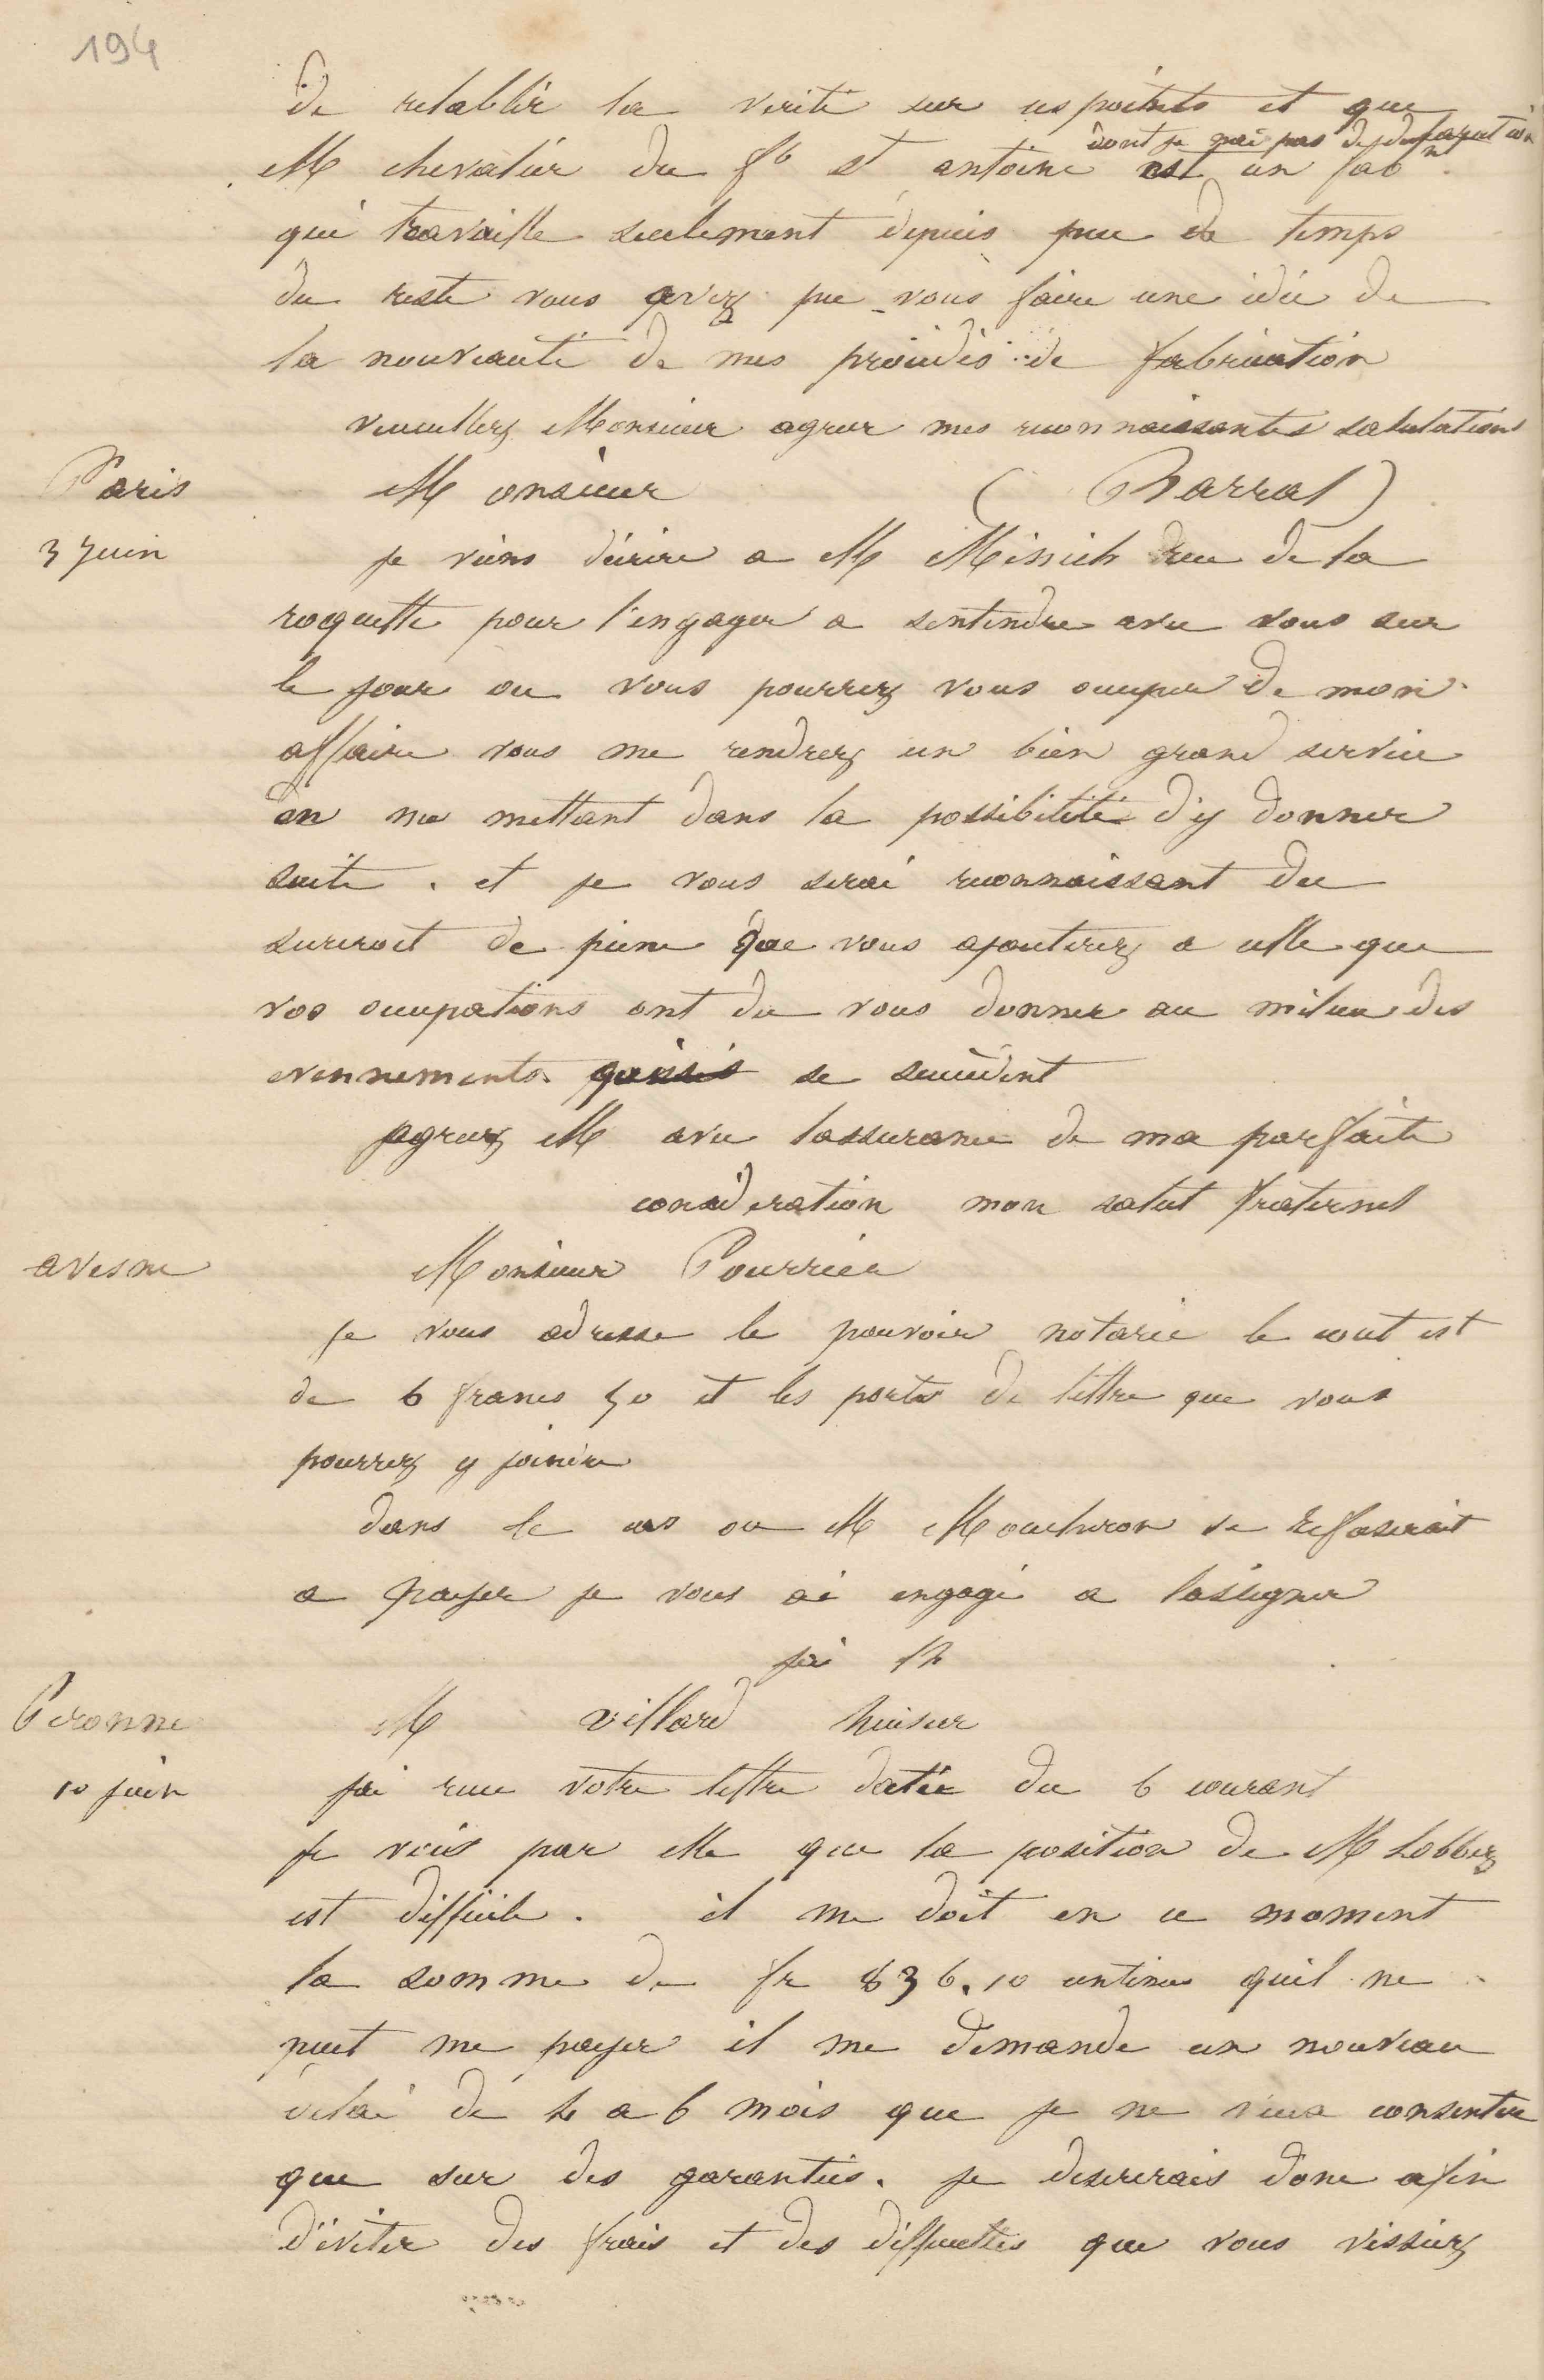 194
de retablir la verité sur ces points et que
dont je n'ai pas de
M chevalier du fb st antoine est un fabnt
qui travaille seulement depuis peu de temps
du reste vous avez pu vous faire une idée de
la nouveauté de mes procidés de fabrication
veuillez Monsieur agreer mes reconnaissantes salutations
Paris Monsieur ( Barral )
3 Juin je viens décrire a M Missich rue de la
roquette pour l'engager a sentendre avec vous sur
le jour ou vous pourrez vous occuper de mon
affaire vous me rendrez un bien grand service
en me mettant dans la possibilité d'y donner
suite . et je vous serai reconnaissant du
surcroit de peine que vous ajouterez a celle que
vos occupations ont du vous donner au milieu des
evennements se succèdent
agreez M avec lassurance de ma parfaite
consideration mon salut fraternel
avesne Monsieur Pourrier
je vous adresse le pouvoir notarié le cout est
de 6 francs 50 et les ports de lettre que vous
pourrez y joindre
dans le cas ou M Moucheron se refuserait
a payer je vous ai engagé a lassigner
jai lh
Peronne M villard huisier
10 juin jai recu votre lettre datée du 6 courant
je vois par elle que la position de M Lobbez
est difficile . il me doit en ce moment
la somme de fr 836.10 centimes quil ne
peut me payer il me demande un nouveau
délai de 4 a 6 mois que je ne veux consentir
que sur des garanties. je desirerais donc afin
d'éviter des frais et des difficultés que vous vissiez